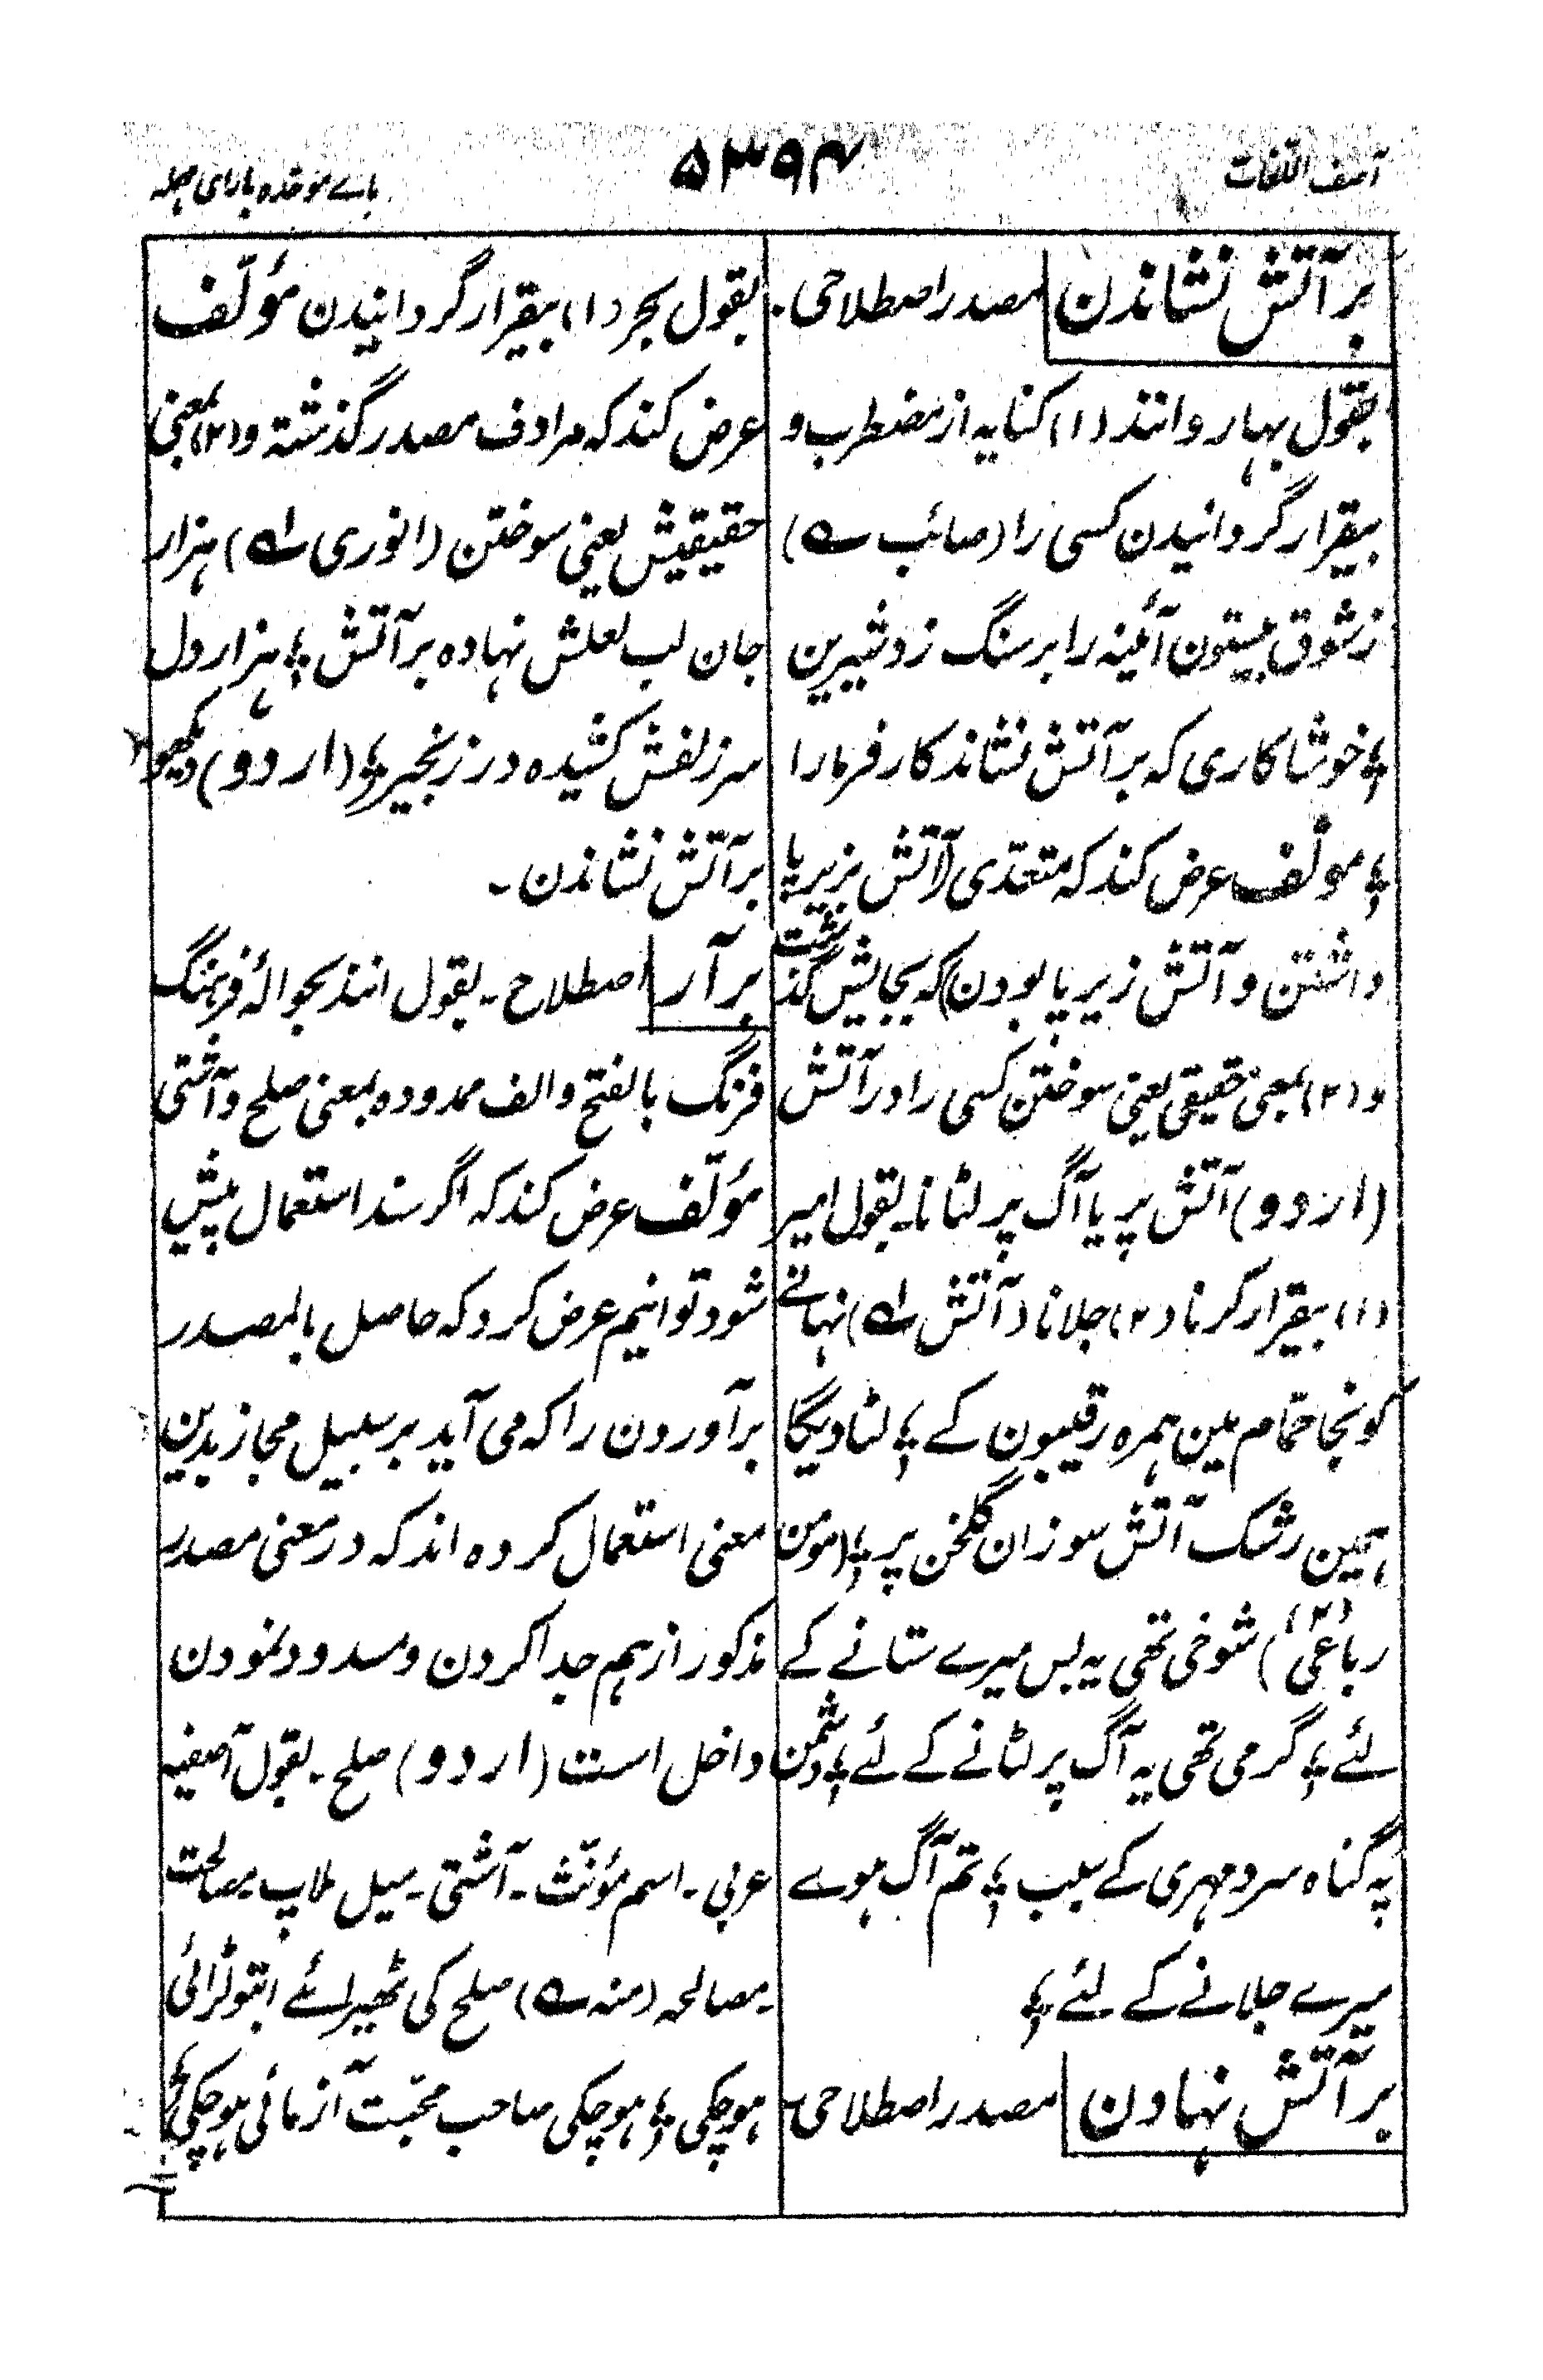 آصف اللغات
۵۳۹۴
بائے موحدہ با رای مہملہ
بر آتش نشاندن مصدر اصطلاحی۔
بقول بہار و انند (۱) کنایہ از مضطرب و
بیقرار گردانیدن کسی را (صائب ؎)
ز شوق بیستون آئینہ را بر سنگ زد شیرین
؛ خوشا کاری کہ بر آتش نشاند کار فرما را
؛ مؤلف عرض کند کہ متعدّی (آتش بزیر پا
داشتن و آتش زیر پا بودن) کہ بجایش گذشت
و (۲) بمعنی حقیقی یعنی سوختن کسی را در آتش
(اردو) آتش پر یا آگ پر لٹانا۔ بقول امیر
(۱) بیقرار کرنا (۲) جلانا (آتش ؎۱) نہانے
کو نجا حمّام مین ہمرہ رقیبون کے ؛ لٹا دیگا
ہمین رشک آتش سوزان گلخن پر ؛ (مومن
رباعی (۲)) شوخی تھی یہ بس میرے ستانے کے
لئے ؛ گرمی تھی یہ آگ پر لٹانے کے لئے ؛ دشمن
پہ گناہ سرد مہری کے سبب ؛ تم آگ ہوے
میرے جلانے کے لئے ؛
بر آتش نہادن مصدر اصطلاحی۔
بقول بحر (۱) بیقرار گردانیدن مؤلّف
عرض کند کہ مرادف مصدر گذشتہ و (۲) بمعنی
حقیقیش یعنی سوختن (انوری ؎۱) ہزار
جان لب لعلش نہادہ بر آتش ؛ ہزار دل
سر زلفش کشیدہ در زنجیر ؛ (اردو) دیکھو
بر آتش نشاندن۔
بر آر اصطلاح۔ بقول انند بحوالۂ فرہنگ
فرنگ بالفتح و الف ممدودہ بمعنی صلح و آشتی
مؤلّف عرض کند کہ اگر سند استعمال پیش
شود توانیم عرض کرد کہ حاصل بالمصدر
بر آوردن را کہ می آید بر سبیل مجاز بدین
معنی استعمال کردہ اند کہ در معنی مصدر
مذکور از ہم جدا کردن و مسدود نمودن
داخل است (اردو) صلح۔ بقول آصفیہ
عربی۔ اسم مؤنّث۔ آشتی۔ میل ملاپ۔ مصالحت
۔ مصالحہ (منہ ؎) صلح کی ٹھیرائے ابتو لڑائی
ہوچکی ؛ ہوچکی صاحب محبّت آزمائی ہوچکی ؛